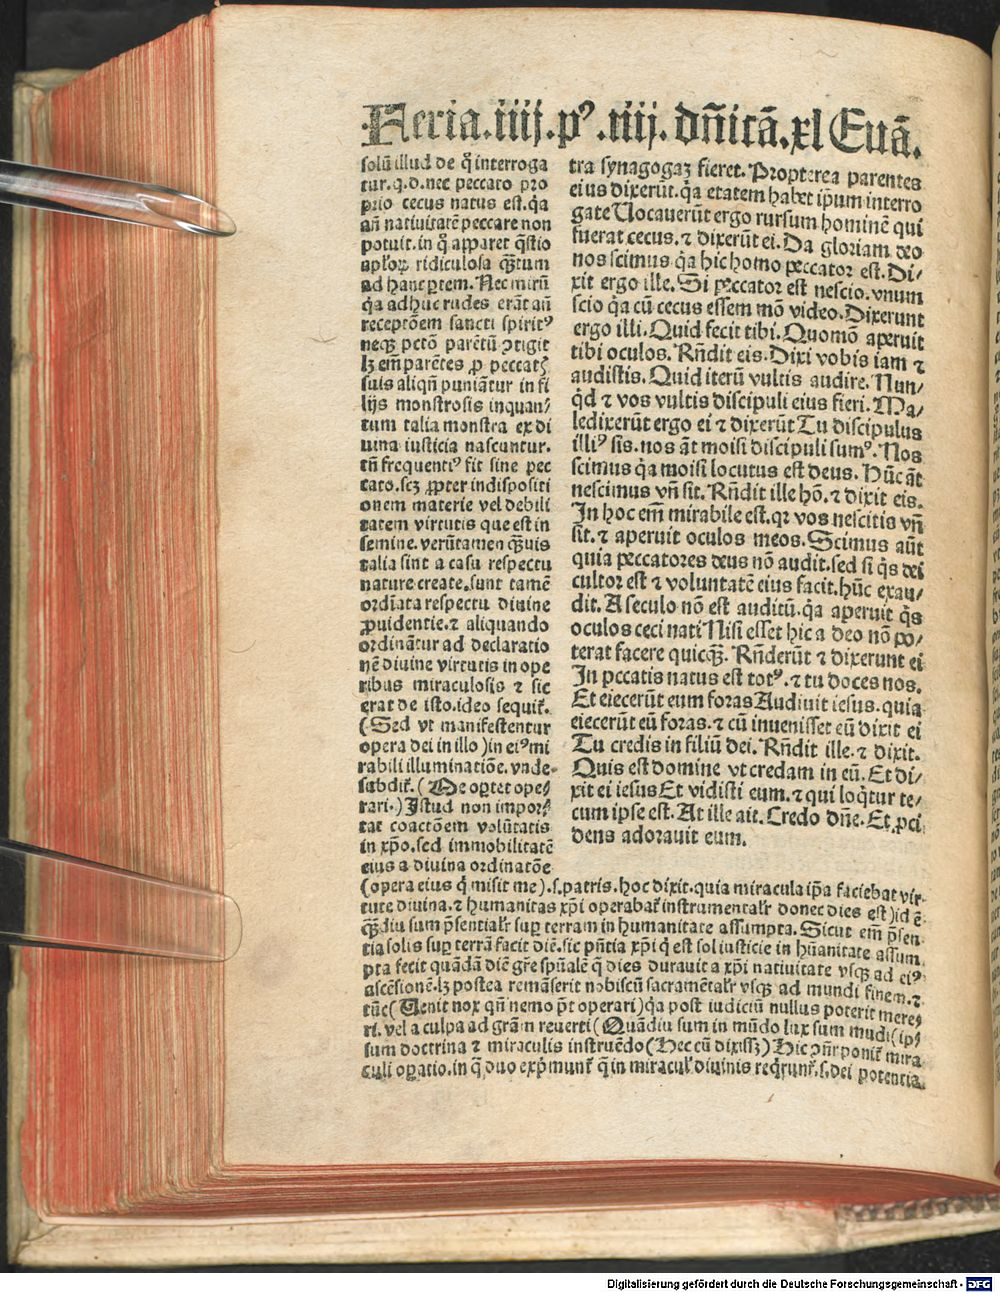 Feria.iiij.pꝰ.iiij.dn̄icā.xl Euā.
solū illud de q̄ interroga
tur.q.d.nec peccato pro
prio cecus natus est.q̇a
an̄ natiuitatē peccare non
potuit.in q̄ apparet q̄stio
apl'oꝝ ridiculosa q̄tum
ad hanc ptem.Nec mirū
q̇a adhuc rudes erāt an̄
receptōem sancti spiritꝰ
neqꝫ pctō parētū ↄtigit
lꝫ em̄ parētes ꝓ peccat
suis aliqn̄ puniātur in fi
lijs monstrosis inquan⸗
tum talia monstra ex di
uina iusticia nascuntur.
tn̄ frequentiꝰ fit sine pec
cato.scꝫ ꝓpter indispositi
onem materie vel debili
tatem virtutis que est in
semine.verūtamen q̄uis
talia sint a casu respectu
nature create.sunt tamē
ordīata respectu diuine
ꝓuidentie.⁊ aliquando
ordinātur ad declaratio
nē diuine virtutis in ope
ribus miraculosis ⁊ sic
erat de isto.ideo sequit̄.
(Sed vt manifestentur
opera dei in illo)in eiꝰ mi
rabili illuminatiōe.vnde⸗
subdit̄.(Me oꝑtet ope⸗
rari.)Istud non impor⸗
tat coactōem volūtatis
in xp̄o.sed immobilitatē
eius a diuina ordinatōe
tra synagogaꝫ fieret.Propterea parentes
eius dixerūt.q̇a etatem habet ip̄um interro
gate Uocauerūt ergo rursum hominē qui
fuerat cecus.⁊ dixerūt ei.Da gloriam deo
nos scimus q̇a hic homo peccator est.Di⸗
xit ergo ille.Si peccator est nescio.vnum
scio q̇a cū cecus essem mō video.Dixerunt
ergo illi.Quid fecit tibi.Quomō aperuit
tibi oculos.Rn̄dit eis.Dixi vobis iam ⁊
audistis.Quid iterū vultis audire.Nun⸗
q̇d ⁊ vos vultis discipuli eius fieri.Ma⸗
ledixerūt ergo ei ⁊ dixerūt Tu discipulus
illiꝰ sis.nos āt moisi discipuli sumꝰ.Nos
scimus q̇a moisi locutus est deus.Hūc āt
nescimus vn̄ sit.Rn̄dit ille hō.⁊ dixit eis.
In hoc em̄ mirabile est.qr vos nescitis vn̄
sit.⁊ aperuit oculos meos.Scimus aūt
quia peccatores deus nō audit.sed si q̇s dei
cultor est ⁊ voluntatē eius facit.hūc exau⸗
dit.A seculo nō est auditū.q̇a aperuit q̇s
oculos ceci nati Nisi esset hic a deo nō po⸗
terat facere quicq̄ꝫ.Rn̄derūt ⁊ dixerunt ei
In pccatis natus est totꝰ.⁊ tu doces nos.
Et eiecerūt eum foras Audiuit iesus.quia
eiecerūt eū foras.⁊ cū inuenisset eū dixit ei
Tu credis in filiū dei.Rn̄dit ille.⁊ dixit.
Quis est domine vt credam in eū.Et di⸗
xit ei iesus Et vidisti eum.⁊ qui loq̇tur te⸗
cum ipse est.At ille ait.Credo dn̄e.Et ꝓci
dens adorauit eum.
(opera eius q̇ misit me).s.patris.hoc dixit.quia miracula ip̄a faciebat vir⸗
tute diuina.⁊ humanitas xp̄i operabat̄ instrumental'r donec dies est)id ē
q̄ꝫdiu sum p̄sential'r suꝑ terram in humanitate assumpta.Sicut em̄ p̄sen
tia solis suꝑ terrā facit diē.sic pn̄tia xp̄i q̇ est sol iusticie in hūanitate assum
pta fecit quādā diē gr̄e sp̄ualē q̄ dies durauit a xp̄i natiuitate vsqꝫ ad eiꝰ
ascēsionē.lꝫ postea remāserit nobiscū sacramētal'r vsqꝫ ad mundi finem.⁊
tūc(Uenit nox qn̄ nemo pt̄ operari)q̇a post iudiciū nullus poterit mere⸗
ri.vel a culpa ad grām reuerti(Quādiu sum in mūdo lux sum mudi(ip⸗
sum doctrina ⁊ miraculis instruēdo(Hec cū dixiss)Hic ↄn̄r ponit̄ mira
culi oꝑatio.in q̄ duo exp̄munt̄ q̄ in miracul' diuinis req̇runt̄.s.dei potentia.
Digitalisierung gefördert durch die Deutsche Forschungsgemeinschaft - DFG